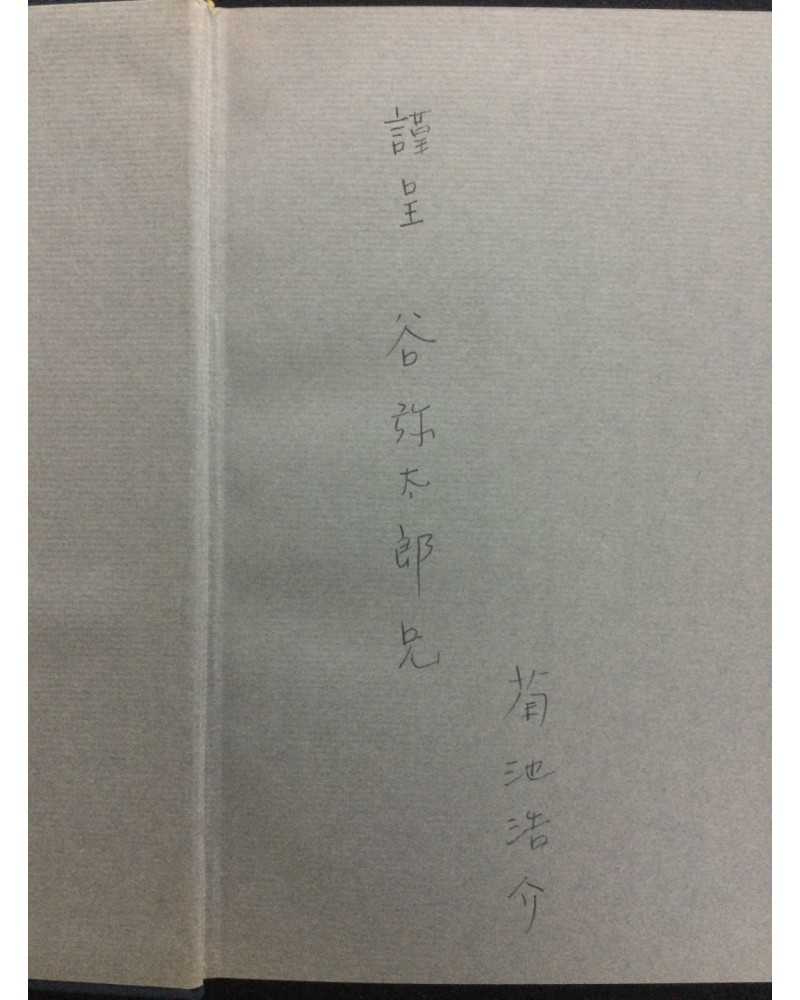 謹呈 谷弥太郎兄
菊池浩介